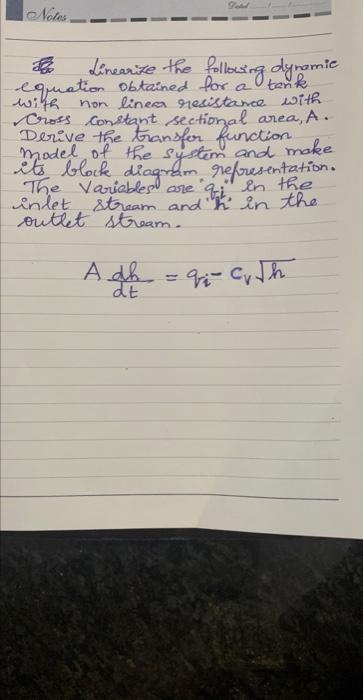 Notes
Linearize the following dynamic
equation obtained for a tank
with non linear resistance with
cross constant sectional area, A.
Derive the transfer function
model of the system and make
its block diagram representation.
The Variables are 'qi' in the
inlet stream and 'h' in the
outlet stream.
A dh/dt = qi - cv√h